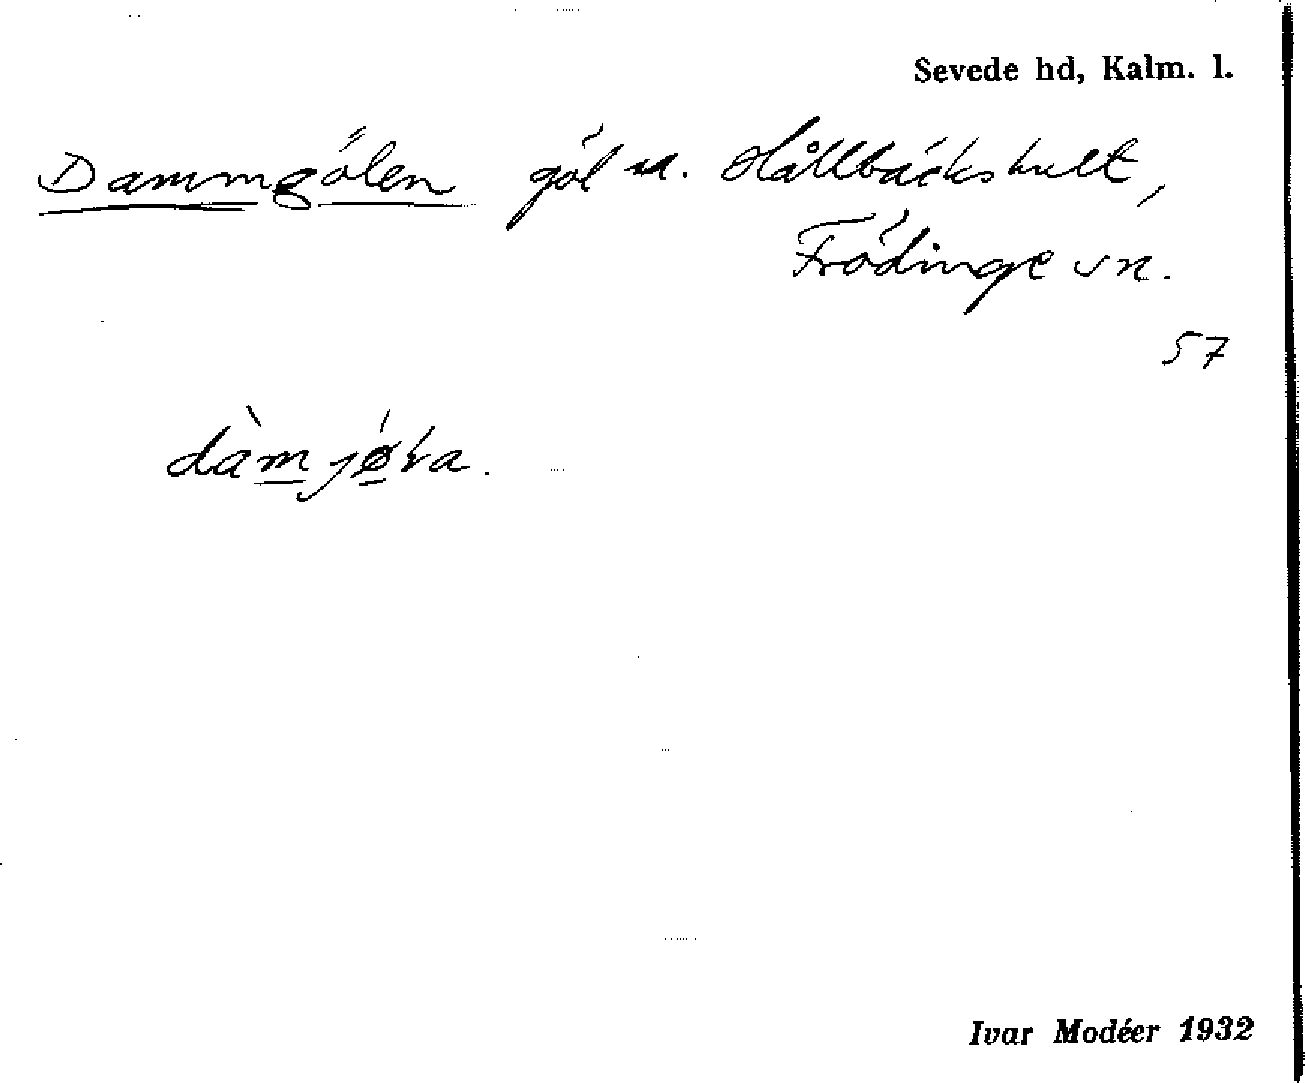 Sevede hd, Kalm. l.
Dammgölen göl u. Hållbäckshult,
Frödinge sn.
57
dàmjøɽa.
Ivar Modéer 1932